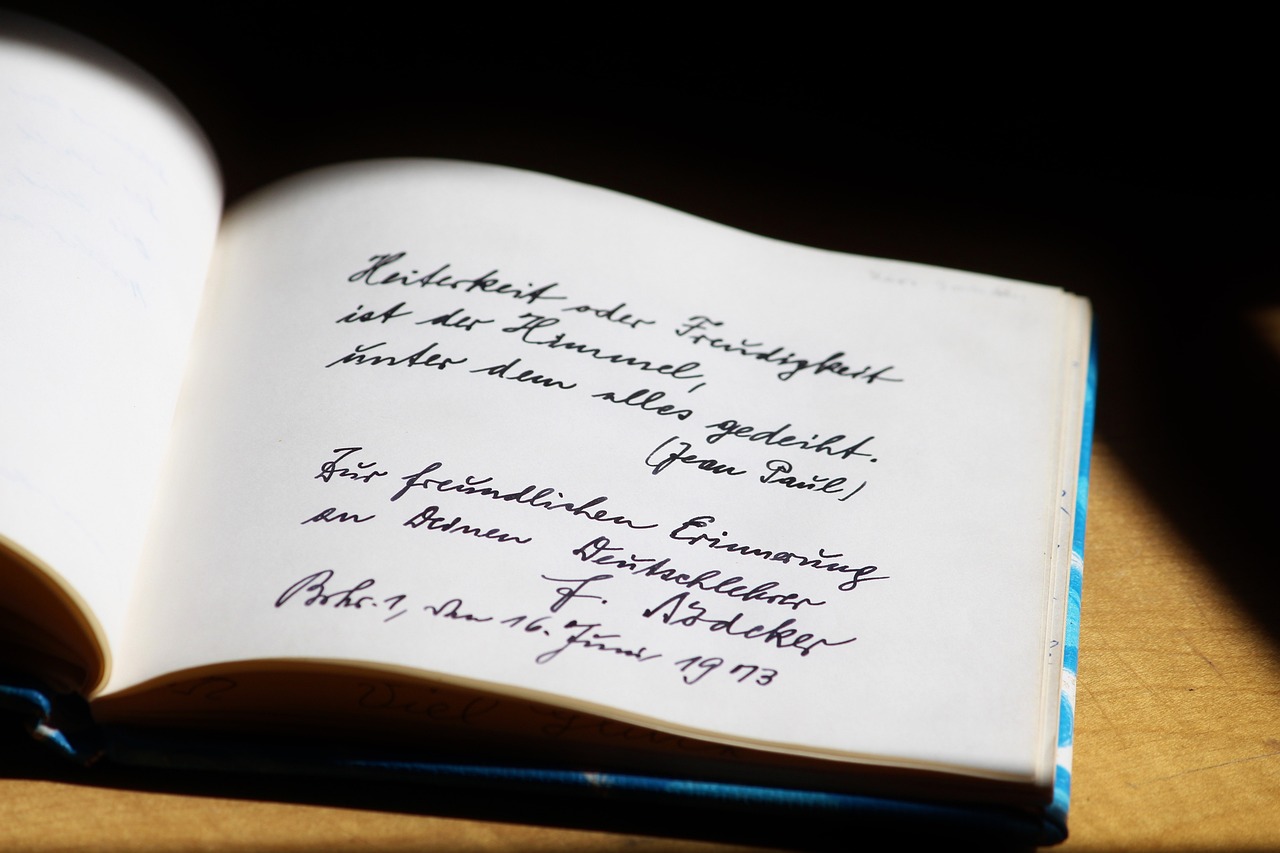 Heiterkeit oder Freudigkeit
ist der Himmel,
unter dem alles gedeiht.
(Jean Paul)
Zur freundlichen Erinnerung
an Deinen Deutschlehrer
F.
Bohr. 1, den 16. Juni 1973
Viel